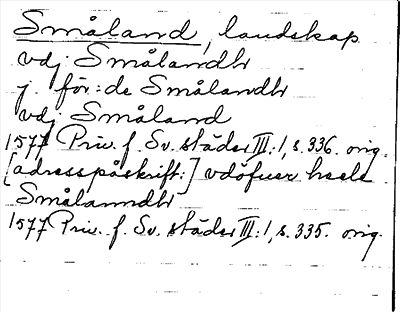 Småland, landskap
vdj Smålandh
j för de Smålandh
vdj Småland
1577 Priv. f. Sv. städer III:1, s. 336. orig.
[adresspåskrift:] vdöfuer heele
Smålanndh
1577 Priv. f. Sv. städer III:1, s. 335. orig.